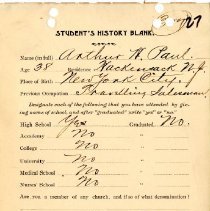 27
STUDENT'S HISTORY BLANK.
Name (in full) Arthur H. Paul.
Age 38 Residence Hackensack N.J.
Place of Birth New York City.
Previous Occupation Travelling Salesman.
Designate each of the following that you have attended by giv-
ing name of school, and after "graduated" write "yes" or "no."
High School Yes Graduated. No.
Academy No
College No
University No
Medical School No
Nurses' School No
Are you a member of any church, and if so what denomination?